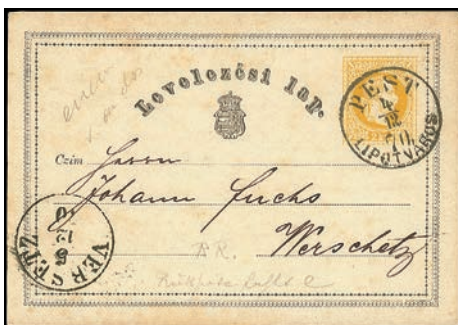 Levelezési lap.
PEST
4
12
70
LIPÓTVÁROS
Czim
Herrn
Johann Fuchs
Werschetz
VERSETZ
5
12